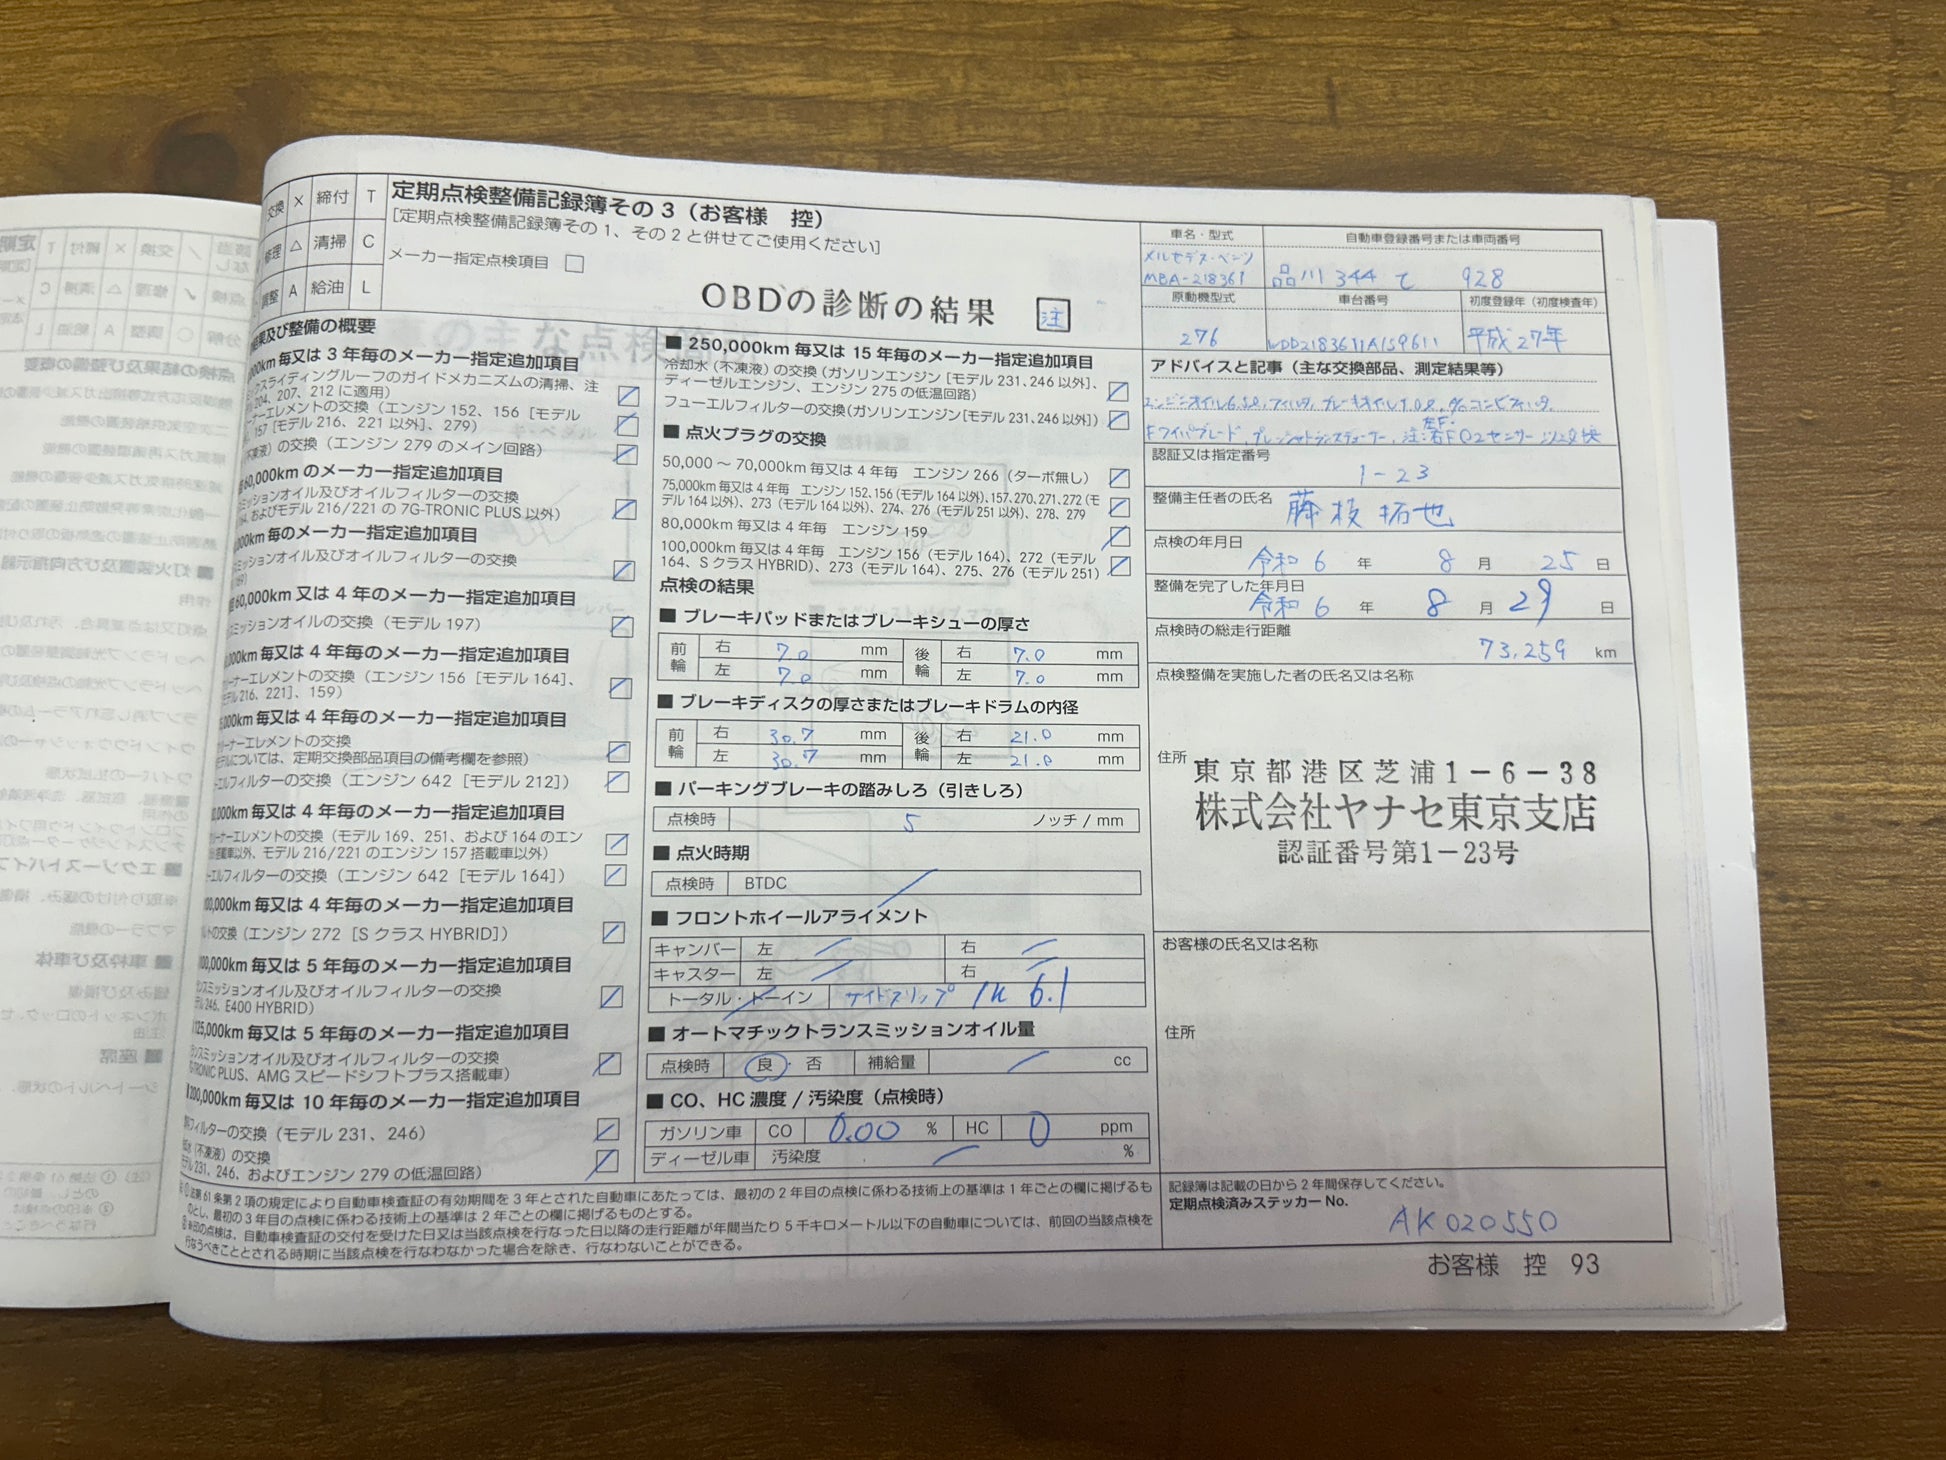 交換 × 締付 T
修理 △ 清掃 C
調整 A 給油 L
定期点検整備記録簿その3（お客様 控）
[定期点検整備記録簿その1、その2と併せてご使用ください]
メーカー指定点検項目
OBDの診断の結果 注
結果及び整備の概要
000km毎又は3年毎のメーカー指定追加項目
スライディングルーフのガイドメカニズムの清掃、注
204、207、212に適用)
ーエレメントの交換（エンジン152、156［モデル
、157［モデル216、221以外］、279）
(不凍液）の交換（エンジン279のメイン回路）
60,000kmのメーカー指定追加項目
ミッションオイル及びオイルフィルターの交換
164、およびモデル216/221の7G-TRONIC PLUS以外）
km毎のメーカー指定追加項目
ミッションオイル及びオイルフィルターの交換
169）
60,000km又は4年毎のメーカー指定追加項目
ミッションオイルの交換（モデル197）
000km毎又は4年毎のメーカー指定追加項目
リーナーエレメントの交換（エンジン156［モデル164］、
モデル216、221］、159）
5,000km毎又は4年毎のメーカー指定追加項目
リーナーエレメントの交換
モデルについては、定期交換部品項目の備考欄を参照）
エルフィルターの交換（エンジン642［モデル212］）
0,000km毎又は4年毎のメーカー指定追加項目
リーナーエレメントの交換（モデル169、251、および164のエン
搭載車以外、モデル216/221のエンジン157搭載車以外）
ーエルフィルターの交換（エンジン642［モデル164］）
100,000km毎又は4年毎のメーカー指定追加項目
ルトの交換（エンジン272［SクラスHYBRID］）
100,000km毎又は5年毎のメーカー指定追加項目
ンスミッションオイル及びオイルフィルターの交換
デル246、E400 HYBRID）
125,000km毎又は5年毎のメーカー指定追加項目
ランスミッションオイル及びオイルフィルターの交換
7G-TRONIC PLUS、AMGスピードシフトプラス搭載車）
200,000km毎又は10年毎のメーカー指定追加項目
フィルターの交換（モデル231、246）
却水（不凍液）の交換
モデル231、246、およびエンジン279の低温回路）
■ 250,000km毎又は15年毎のメーカー指定追加項目
冷却水（不凍液）の交換（ガソリンエンジン［モデル231、246以外］、
ディーゼルエンジン、エンジン275の低温回路）
フューエルフィルターの交換（ガソリンエンジン［モデル231、246以外］）
■ 点火プラグの交換
50,000～70,000km毎又は4年毎 エンジン266（ターボ無し）
75,000km毎又は4年毎 エンジン152、156（モデル164以外）、157、270、271、272（モ
デル164以外）、273（モデル164以外）、274、276（モデル251以外）、278、279
80,000km毎又は4年毎 エンジン159
100,000km毎又は4年毎 エンジン156（モデル164）、272（モデル
164、SクラスHYBRID）、273（モデル164）、275、276（モデル251）
点検の結果
■ ブレーキパッドまたはブレーキシューの厚さ
前輪 右 7.0 mm 後輪 右 7.0 mm
左 7.0 mm 左 7.0 mm
■ ブレーキディスクの厚さまたはブレーキドラムの内径
前輪 右 30.7 mm 後輪 右 21.0 mm
左 30.7 mm 左 21.0 mm
■ パーキングブレーキの踏みしろ（引きしろ）
点検時 5 ノッチ / mm
■ 点火時期
点検時 BTDC
■ フロントホイールアライメント
キャンバー 左 右
キャスター 左 右
トータル・トーイン サイドスリップ IN 6.1
■ オートマチックトランスミッションオイル量
点検時 良・否 補給量 cc
■ CO、HC濃度 / 汚染度（点検時）
ガソリン車 CO 0.00 % HC 0 ppm
ディーゼル車 汚染度 %
車名・型式 自動車登録番号または車両番号
メルセデス・ベンツ
MBA-218361 品川 344 て 928
原動機型式 車台番号 初度登録年（初度検査年）
276 WDD2183611A159611 平成27年
アドバイスと記事（主な交換部品、測定結果等）
エンジンオイル6.5ℓ, フィルタ, ブレーキオイル1.0ℓ, A/Cコンビフィルタ,
Fワイパブレード, プレッシャトランスデューサー, 注:右F O2センサー 以上交換
左F・
認証又は指定番号
1-23
整備主任者の氏名 藤枝 拓也
点検の年月日
令和 6 年 8 月 25 日
整備を完了した年月日
令和 6 年 8 月 29 日
点検時の総走行距離
73,259 km
点検整備を実施した者の氏名又は名称
住所
東京都港区芝浦1－6－38
株式会社ヤナセ東京支店
認証番号第1－23号
お客様の氏名又は名称
住所
記録簿は記載の日から2年間保存してください。
定期点検済みステッカー No.
AK020550
① 法第61条第2項の規定により自動車検査証の有効期間を3年とされた自動車にあたっては、最初の2年目の点検に係わる技術上の基準は1年ごとの欄に掲げるも
のとし、最初の3年目の点検に係わる技術上の基準は2年ごとの欄に掲げるものとする。
② ※印の点検は、自動車検査証の交付を受けた日又は当該点検を行なった日以降の走行距離が年間当たり5千キロメートル以下の自動車については、前回の当該点検を
行なうべきこととされる時期に当該点検を行なわなかった場合を除き、行なわないことができる。
お客様 控 93